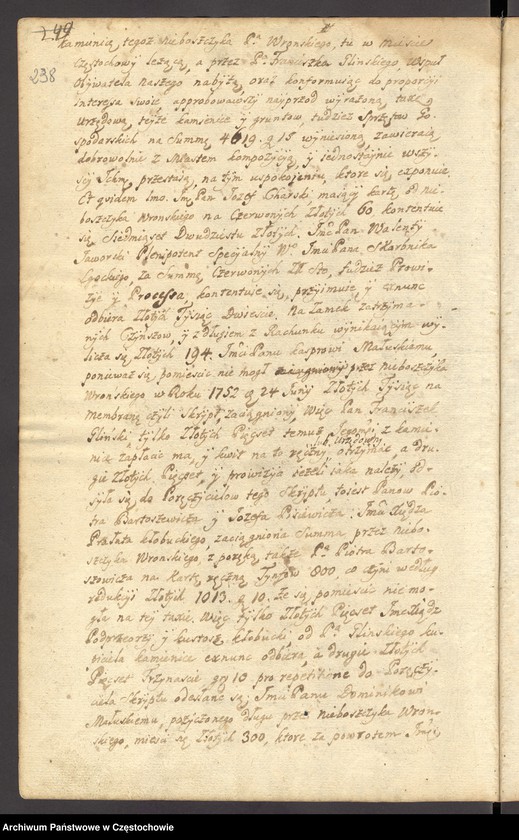 149
238
kamienia tegoż nieboszczyka Pa Wronskiego, tu w Miescie
Częstochowy leżącą, a przez Pa Franciszka Glinskiego, Wspuł
Obywatela naszego nabytą, oraz konformuiąc do proporcyi
Interesa Swoie, approbowawszy nayprzod wyrażoną taxę
Urzędową, teyże kamienicy y gruntow, tudzież Sprzętow Go-
spodarskich na Summę 4619. g 15 wyniesioną zawieraią
dobrowolnie z Miastem kompozycyą, y iednostaynie wszy-
scy Ichm. przestaią, na tym uspokoieniu, ktore się exponuie.
Et quidem Imo. Jm Pan Jozef maiący kartę od nie-
boszczyka Wronskiego na Czerwonych Złotych 60. kontentuie
się Siedmiąset Dwudziestu Złotych, Jmc Pan Walenty
Jaworski Plenipotent Specyalny W. Jmci Pana Skarbnika
za Summę Czerwonych Zł Sto, tudzież Prowi-
zye y Processa, kontentuie się, przyimuie y exnunc
odbiera Złotych Tysiąc Dwieście, Na Zamek zatrzyma-
nych Czynszow, y z długiem z Rachunku wynikaiącym wy-
licza się Złotych 194. Jmci Panu Kasprowi Małuskiemu
ponieważ się pomieścic nie mogł przez nieboszczyka
Wronskiego w Roku 1752 g 24 Junij Złotych Tysiąc na
membranę czyli Skrypt, zaciągniony, więc Pan Franciszek
Glinski, tylko Złotych Pięcset temuż Jegomci z kamie-
nia zapłacic ma, y kwit na to ręczny, urzędowny otrzymac a dru-
gie Złotych Pięcset, y prowizya ieżeli iaka należy, od-
syła się do Poręczycielow tego Skryptu toiest Panow Pio-
tra Bartoszewicza y Jozefa Jmci Xiędza
Prałata kłobuckiego, zaciągniona Summa przez niebo-
szczyka Wronskiego, z poręką, także Pa Piotra Barto-
szowicza na kartę ręczną Tynfow 800 co czyni według
redukcyi Złotych 1013. g 10. że się pomieścic nie mo-
gła na tey taxie. Więc tylko Złotych Pięcset Jmc Xiądz
Podprzeorzy y kustosz kłobucki, od Pa Glinskiego ku-
piciela kamienicy exnunc odbiera, a drugie Złotych
Pięcset Trzynaście gr 10 pro repetitione do Poręczy-
ciela Skryptu odesłane są; Jmci Panu Dominikowi
Małuskiemu, pożyczonego długu przez nieboszczyka Wron-
skiego, mieści się Złotych 300, ktore za powrotem
Archiwum Państwowe w Częstochowie